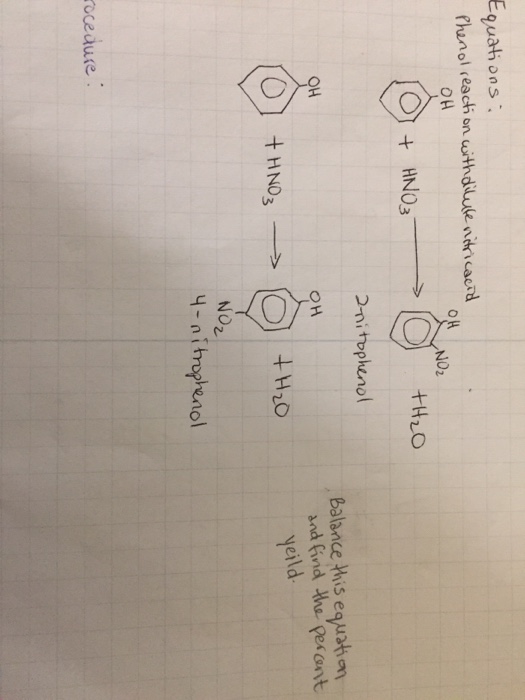 Equations:
Phenol reaction with dilute nitric acid
OH
+ HNO₃ →
OH
NO₂
+ H₂O
2-nitophenol
OH
+ HNO₃ →
OH
NO₂
+ H₂O
4-nitrophenol
Balance this equation
and find the percent
yeild.
rocedure: